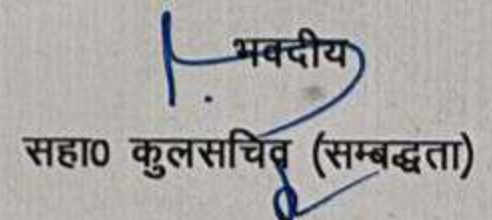 भवदीय
सहा0 कुलसचिव (सम्बद्धता)